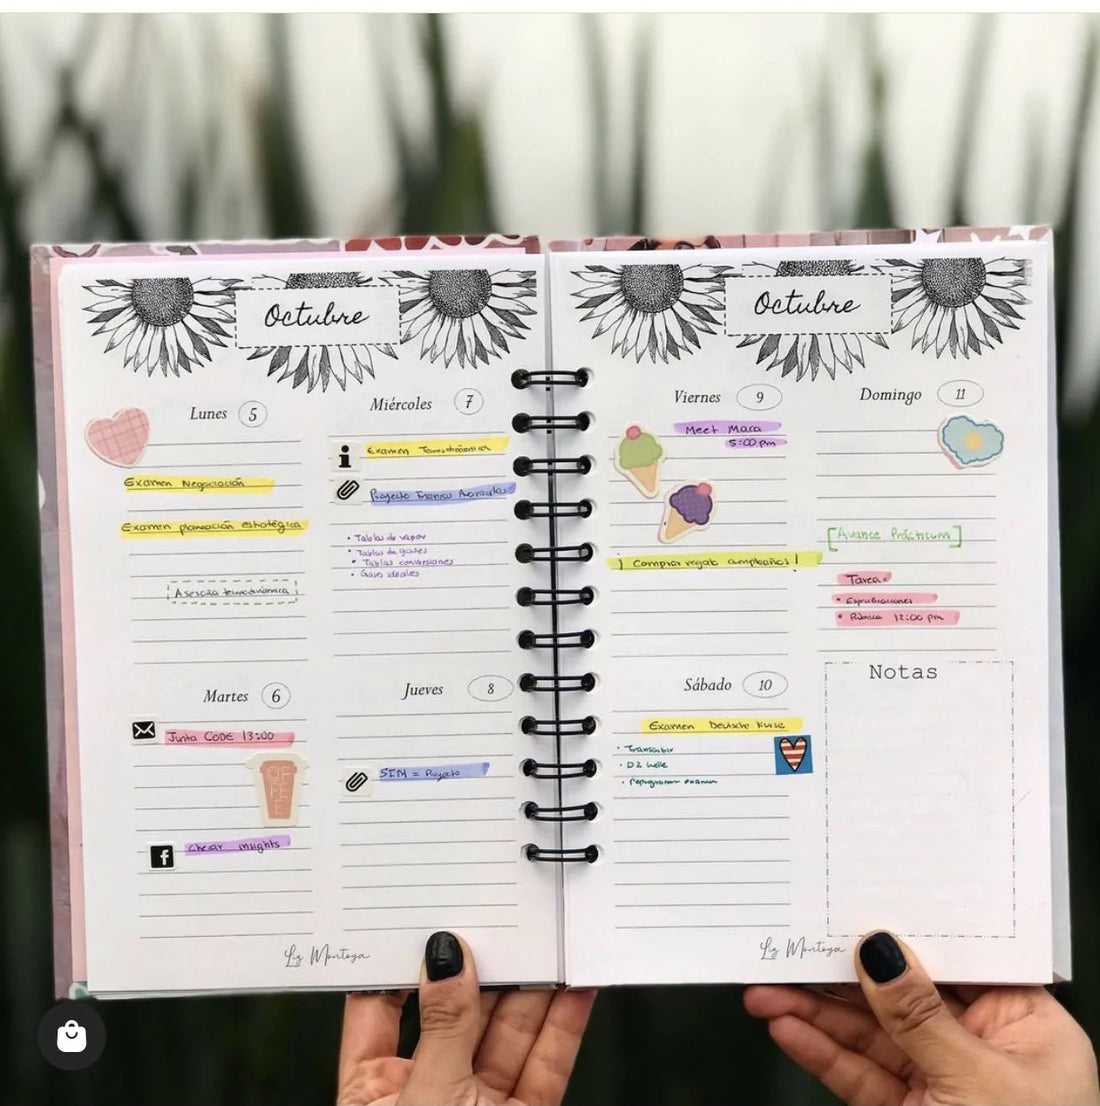 Octubre
Lunes 5
Examen Negociación
Examen planeación estratégica
Asesoría termodinámica
Martes 6
Junta CODE 13:00
COFFEE
Checar insights
Miércoles 7
Examen Termodinámica
Proyecto Avanzadas
• Tablas de vapor
• Tablas de gases
• Tablas conversiones
• Gases ideales
Jueves 8
SIM = Proyecto
Lz Montoya
Octubre
Viernes 9
Meet Mara
5:00 pm
¡ Comprar regalo cumpleaños !
Sábado 10
Examen Deutsche Kurse
• Transcribir
• D2
• examen
Domingo 11
[Avance Prácticum]
Tarea:
•
• 12:00 pm
Notas
Lz Montoya